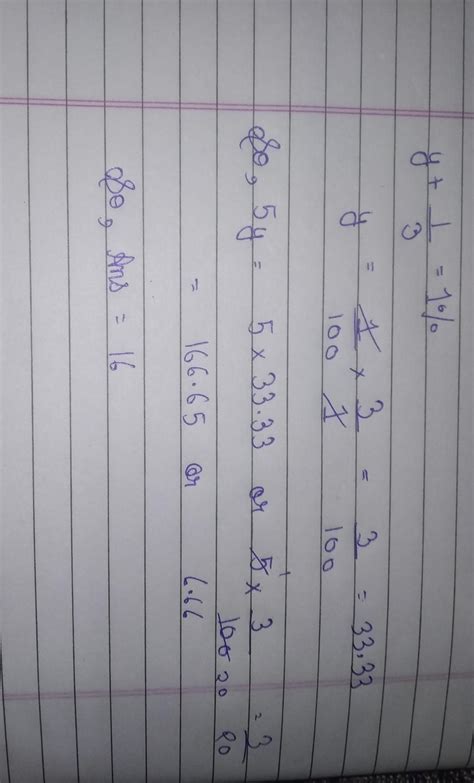 y + 1/3 = 1%
y = 1/100 × 3/1 = 3/100 = 33.33
So, 5y = 5 × 33.33 or 5 1 × 3/100 20 = 3/20
= 166.65 or 6.66
So, Ans = 16